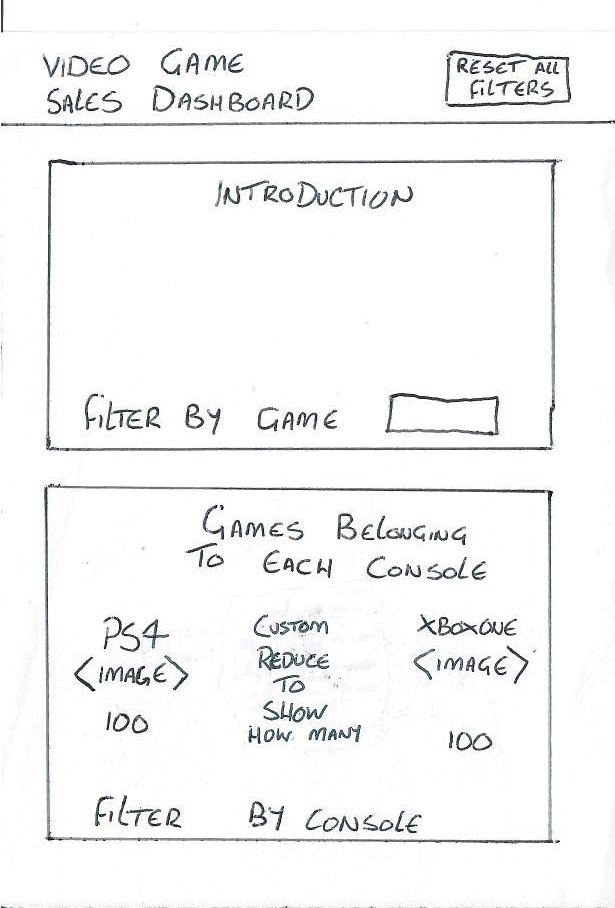 VIDEO GAME
SALES DASHBOARD
RESET ALL
FILTERS
INTRODUCTION
FILTER BY GAME
GAMES BELONGING
TO EACH CONSOLE
PS4
<IMAGE>
100
CUSTOM
REDUCE
TO
SHOW
HOW MANY
XBOXONE
<IMAGE>
100
FILTER BY CONSOLE